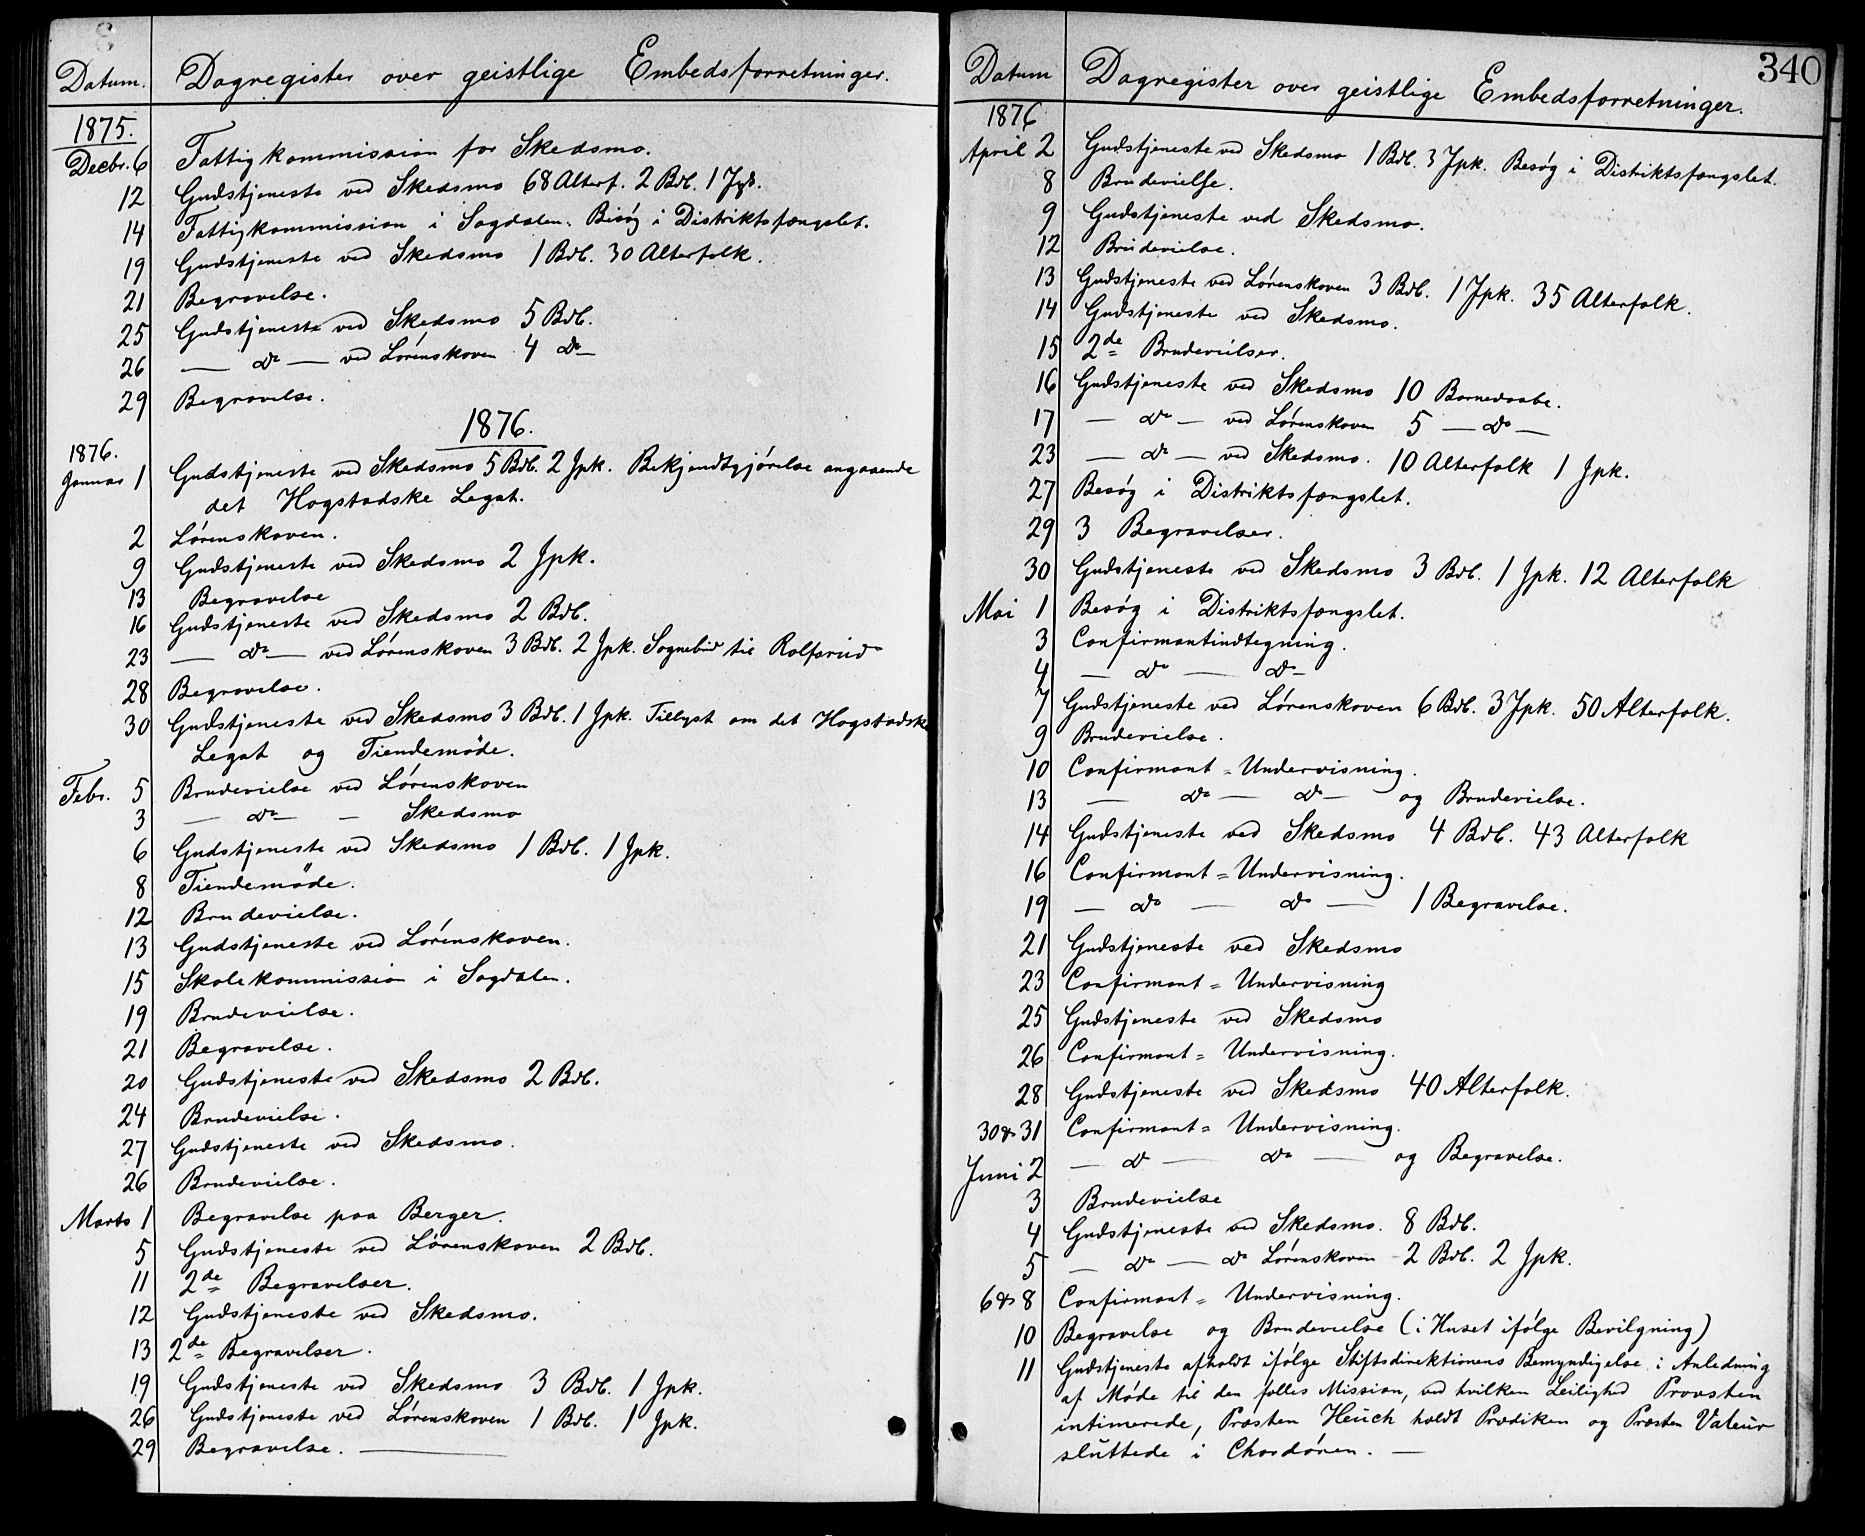 Datum. Dagregister over geistlige Embedsforretninger.
1875.
Decbr. 6 Fattigkommission for Skedsmo.
12 Gudstjeneste ved Skedsmo 68 Alterf. 2 Bdb. 1
14 Fattigkommission i Sagdalen. Besøg i Distriktsfængslet.
19 Gudstjeneste ved Skedsmo 1 Bdb. 30 Alterfolk.
21 Begravelse.
25 Gudstjeneste ved Skedsmo 5 Bdb.
26 — do — ved Lørenskoven 4 do —
29 Begravelse.
1876.
1876.
Januar 1 Gudstjeneste ved Skedsmo 5 Bdb. 2 Jpk. Bekjendtgjørelse angaaende
det Hogstadske Legat.
2 Lørenskoven.
9 Gudstjeneste ved Skedsmo 2 Jpk.
13 Begravelse
16 Gudstjeneste ved Skedsmo 2 Bdb.
23 — do — ved Lørenskoven 3 Bdb. 2 Jpk. Sognebud til Rolfsrud
28 Begravelse.
30 Gudstjeneste ved Skedsmo 3 Bdb. 1 Jpk. Tillyst om det Hogstadske
Legat og Tiendemøde.
Febr. 5 Brudevielse ved Lørenskoven
3 — do — — Skedsmo
6 Gudstjeneste ved Skedsmo 1 Bdb. 1 Jpk.
8 Tiendemøde.
12 Brudevielse.
13 Gudstjeneste ved Lørenskoven.
15 Skolekommission i Sagdalen.
19 Brudevielse.
21 Begravelse.
20 Gudstjeneste ved Skedsmo 2 Bdb.
24 Brudevielse.
27 Gudstjeneste ved Skedsmo.
26 Brudevielse.
Marts 1 Begravelse paa Berger.
5 Gudstjeneste ved Lørenskoven 2 Bdb.
11 2de Begravelser.
12 Gudstjeneste ved Skedsmo.
13 2de Begravelser.
19 Gudstjeneste ved Skedsmo 3 Bdb. 1 Jpk.
26 Gudstjeneste ved Lørenskoven 1 Bdb. 1 Jpk.
29 Begravelse. —
340
Datum Dagregister over geistlige Embedsforretninger.
1876
April 2 Gudstjeneste ved Skedsmo 1 Bdb. 3 Jpk. Besøg i Distriktsfængslet.
8 Brudevielse.
9 Gudstjeneste ved Skedsmo.
12 Brudevielse.
13 Gudstjeneste ved Lørenskoven 3 Bdb. 1 Jpk. 35 Alterfolk.
14 Gudstjeneste ved Skedsmo.
15 2de Brudevielser.
16 Gudstjeneste ved Skedsmo 10 Barnedaabe.
17 — do — ved Lørenskoven 5 — do —
23 — do — ved Skedsmo. 10 Alterfolk 1 Jpk.
27 Besøg i Distriktsfængslet.
29 3 Begravelser.
30 Gudstjeneste ved Skedsmo 3 Bdb. 1 Jpk. 12 Alterfolk
Mai 1 Besøg i Distriktsfængslet.
3 Confirmantindtegning.
4 — do — do —
7 Gudstjeneste ved Lørenskoven 6 Bdb. 3 Jpk. 50 Alterfolk.
9 Brudevielse.
10 Confirmant = Undervisning.
13 — do — do — og Brudevielse.
14 Gudstjeneste ved Skedsmo 4 Bdb. 43 Alterfolk
16 Confirmant = Undervisning.
19 — do — do — 1 Begravelse.
21 Gudstjeneste ved Skedsmo
23 Confirmant = Undervisning
25 Gudstjeneste ved Skedsmo
26 Confirmant = Undervisning.
28 Gudstjeneste ved Skedsmo 40 Alterfolk.
30 & 31 Confirmant = Undervisning.
Juni 2 — do — do — og Begravelse.
3 Brudevielse
4 Gudstjeneste ved Skedsmo. 8 Bdb.
5 — do — do Lørenskoven - 2 Bdb. 2 Jpk.
6 & 8 Confirmant = Undervisning.
10 Begravelse og Brudevielse (i Huset ifølge Bevilgning)
11 Gudstjeneste afholdt ifølge Stiftsdirektionens Bemyndigelse i Anledning
af Møde til den fælles Mission, ved hvilken Leilighed Provsten
intimerede, Præsten Heuch holdt Prædiken og Præsten Valeur
sluttede i Chordøren. —